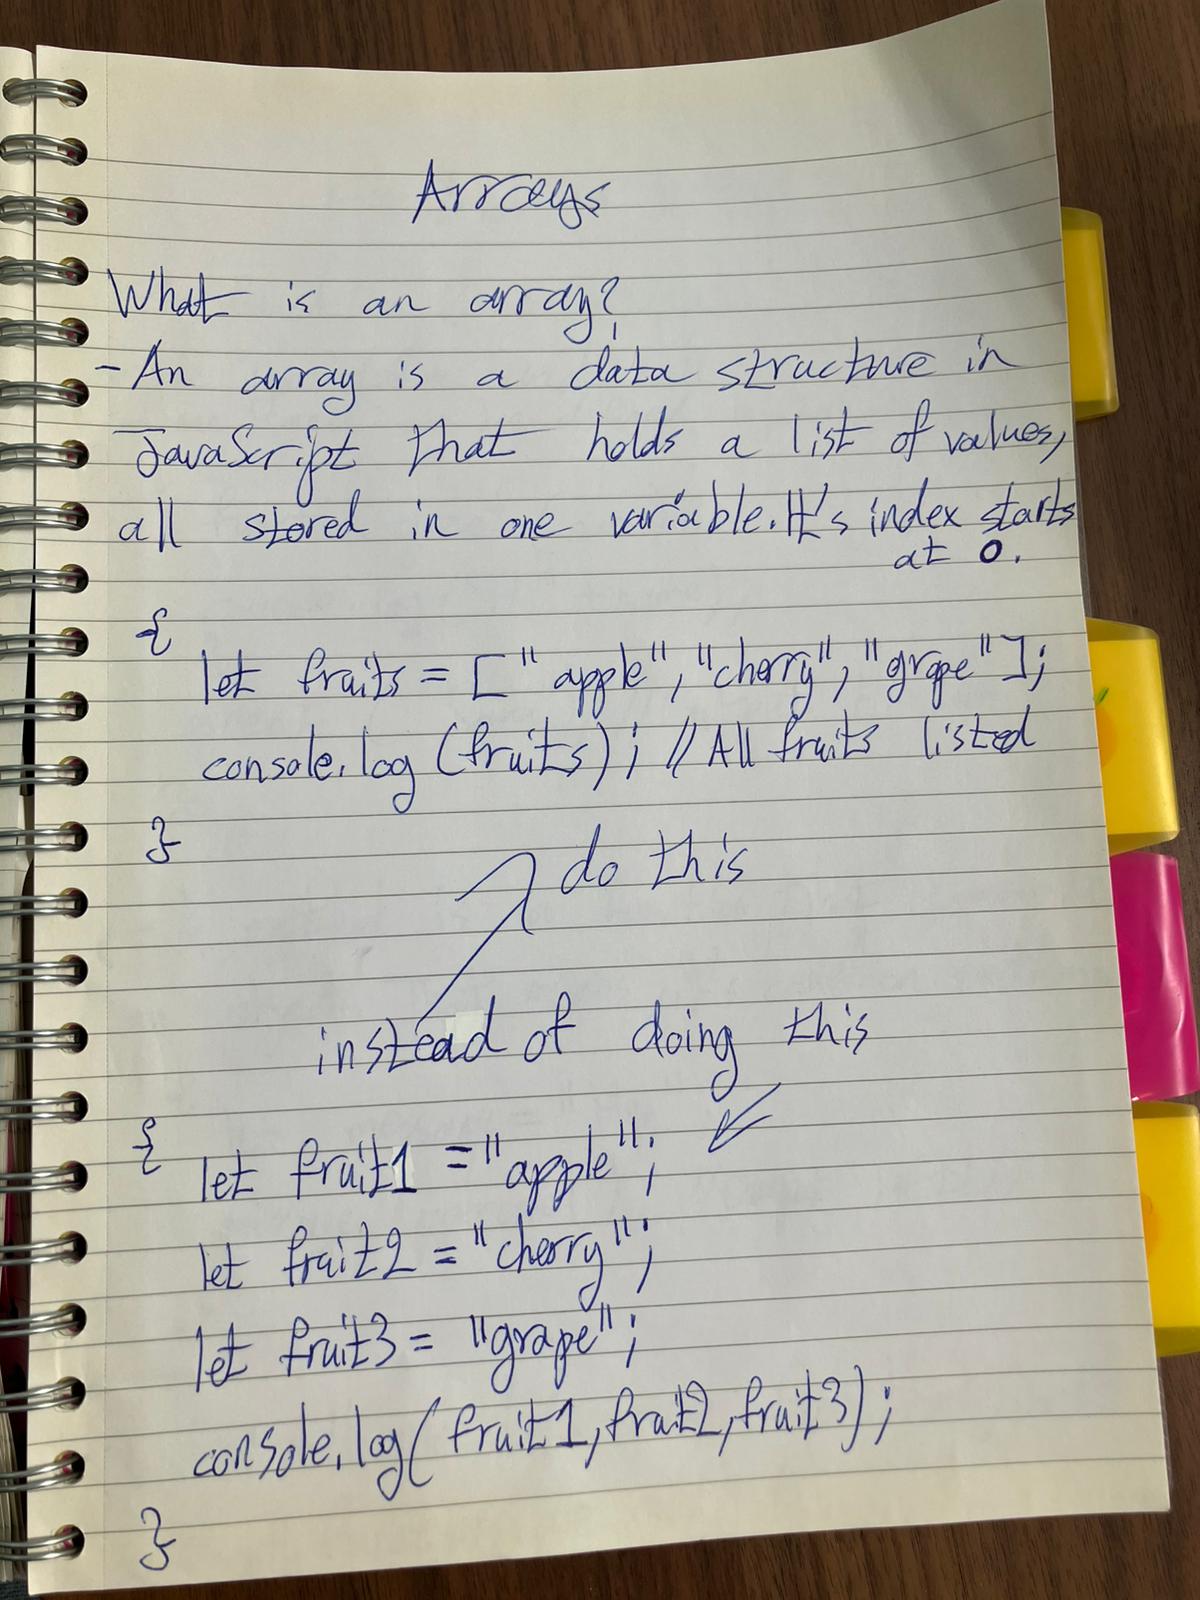 Arrays
What is an array?
- An array is a data structure in
JavaScript that holds a list of values,
all stored in one variable. It's index starts
at 0.
{
let fruits = ["apple", "cherry", "grape"];
console.log(fruits); // All fruits listed
}
do this
instead of doing this
{
let fruit1 = "apple";
let fruit2 = "cherry";
let fruit3 = "grape";
console.log(fruit1, fruit2, fruit3);
}